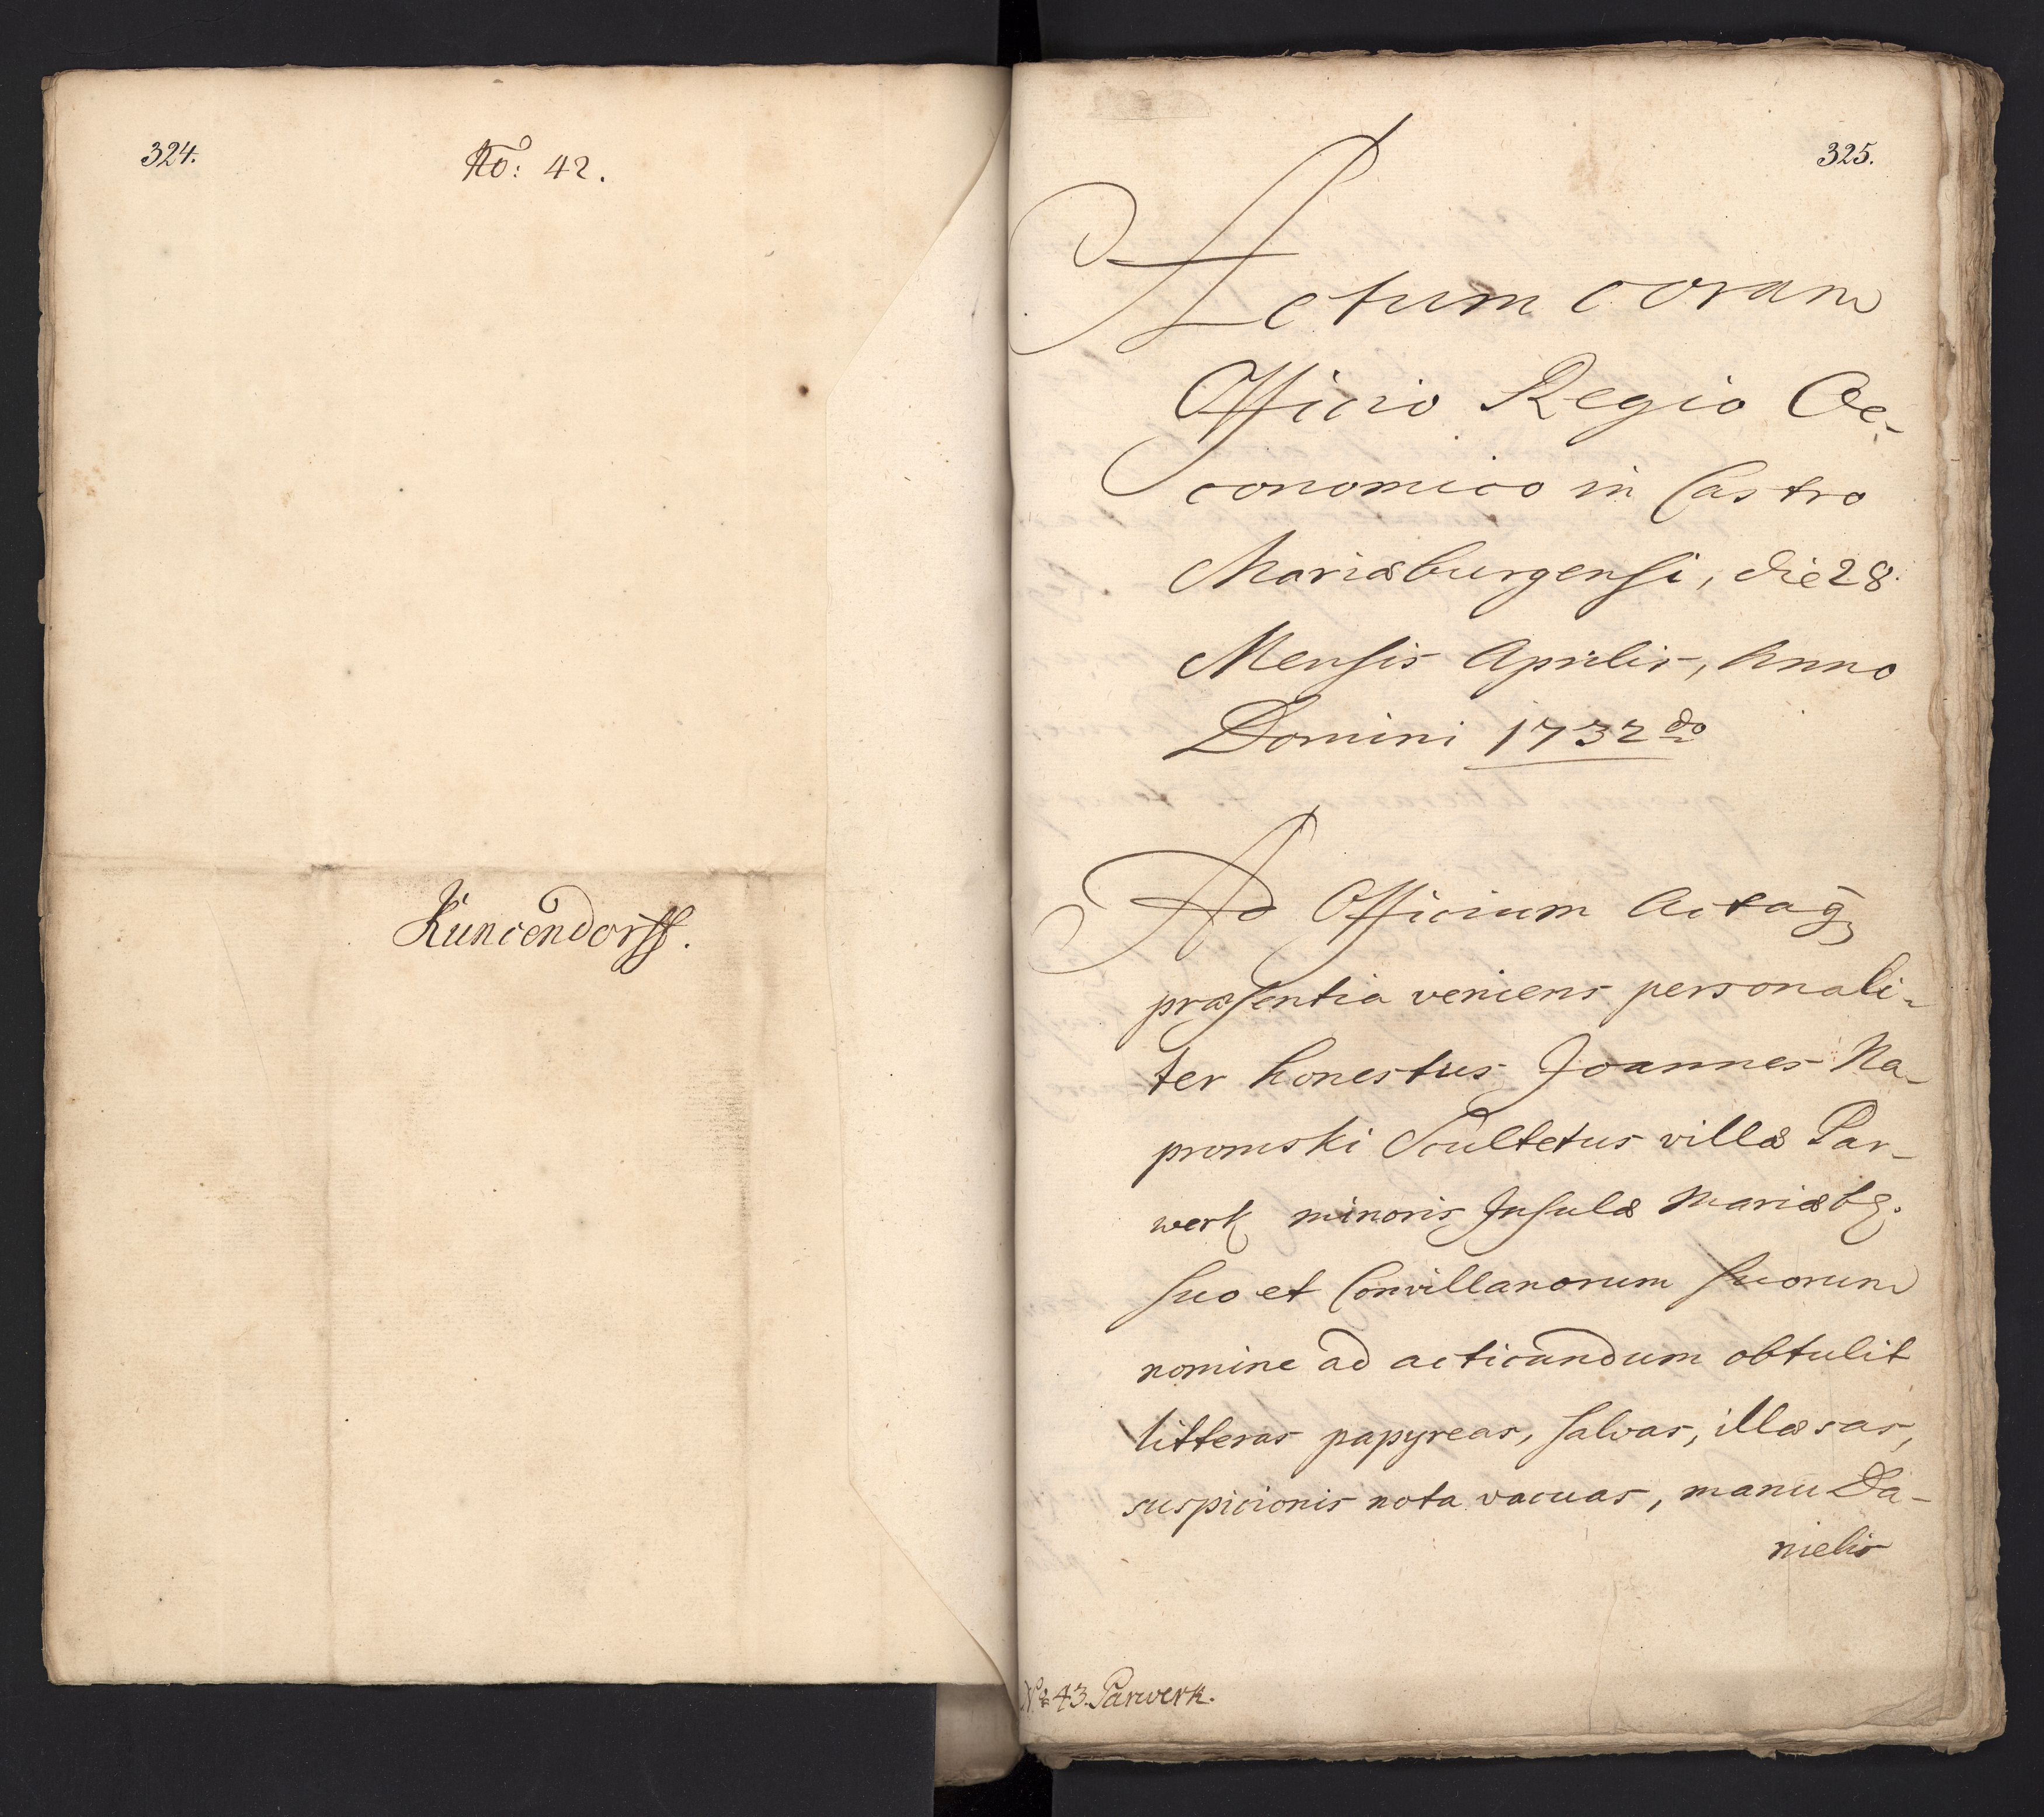 324.
No: 42.
Kuncendorff.
325.
Actum coram
Officio Regio Oe-
conomico in Castro
Mariæburgensi, die 28.
Mensis Aprilis, Anno
Domini 1732do
Ad Officium Actaq3
præsentia veniens personali-
ter honestus Joannes Na-
promski Scultetus villæ Par-
werk minoris Insulæ Mariæbg.
suo et Convillanorum suorum
nomine ad acticandum obtulit
litteras papyreas, salvas, illæsas,
suspicionis nota vacuas, manu Da-
nielis
No 43. Parwerk.